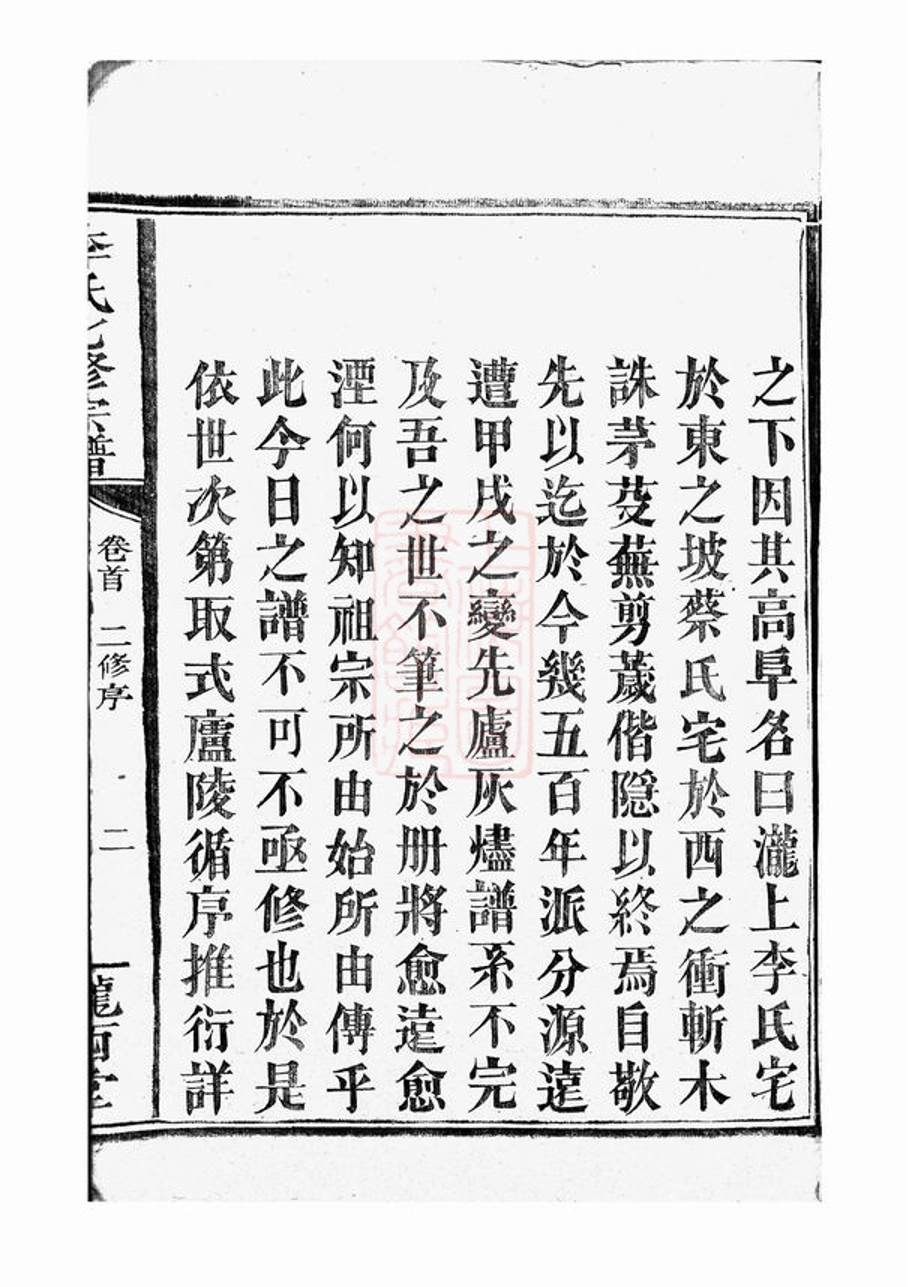 之下因其高阜名曰瀧上李氏宅
於東之坡蔡氏宅於西之衝斬木
誅茅芟蕪剪薉偕隱以終焉自敬
先以迄於今幾五百年派分源遠
遭甲戌之變先廬灰燼譜系不完
及吾之世不筆之於册將愈遠愈
湮何以知祖宗所由始所由傳乎
此今日之譜不可不亟修也於是
依世次第取式廬陵循序推衍詳
李氏七修宗譜
卷首 二修序
二
隴西堂